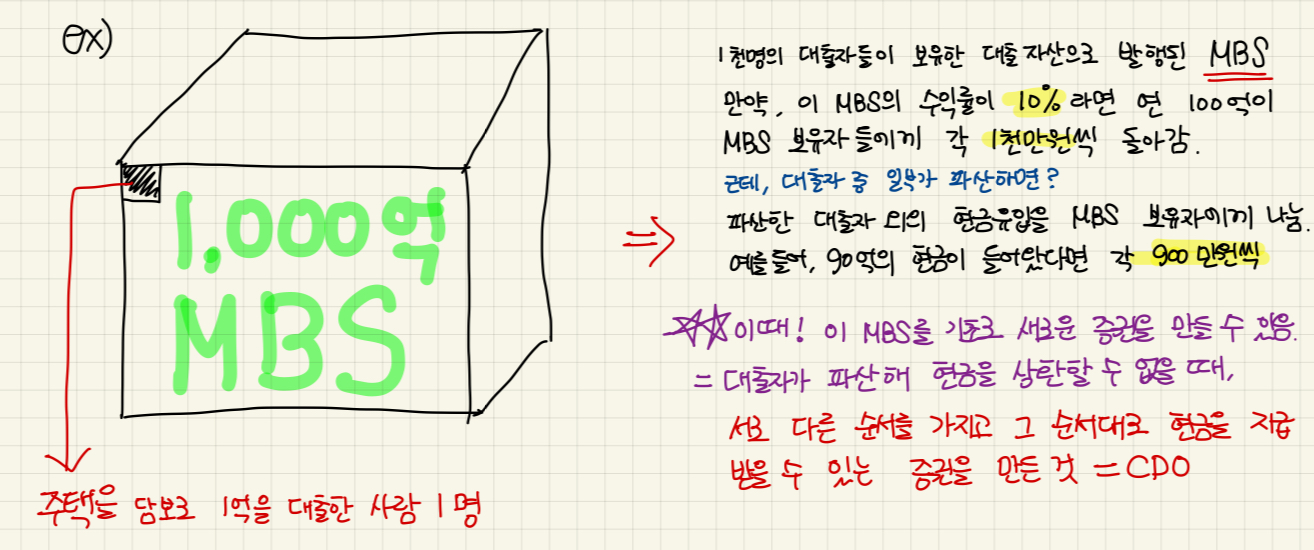 ex)
1,000억
MBS
주택을 담보로 1억을 대출한 사람 1명
1천명의 대출자들이 보유한 대출자산으로 발행된 MBS
만약, 이 MBS의 수익률이 10%라면 연 100억이
MBS 보유자들에게 각 1천만원씩 돌아감.
근데, 대출자 중 일부가 파산하면?
파산한 대출자 외의 현금유입을 MBS 보유자에게 나눔.
예를들어, 90억의 현금이 들어왔다면 각 900만원씩
이때! 이 MBS를 기초로 새로운 증권을 만들 수 있음.
= 대출자가 파산해 현금을 상환할 수 없을 때,
서로 다른 순서를 가지고 그 순서대로 현금을 지급
받을 수 있는 증권을 만든 것 = CDO